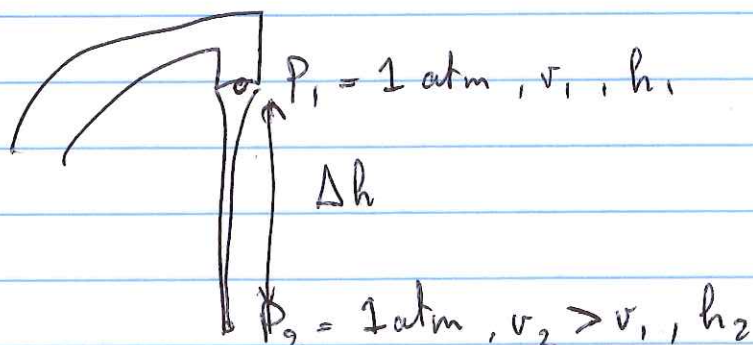 P₁ = 1 atm, v₁, h₁
Δh
P₂ = 1 atm, v₂ > v₁, h₂